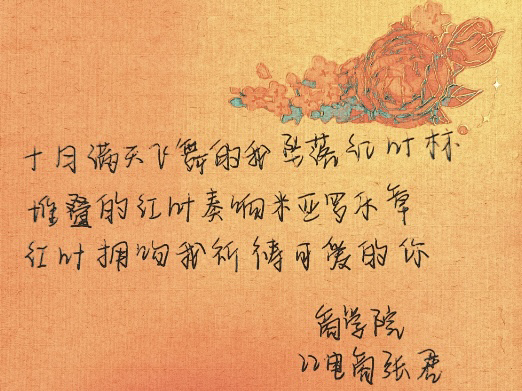 十月满天飞舞的我坠落红叶林
堆叠的红叶奏响米亚罗乐章
红叶拥吻我祈待可爱的你
商学院
22电商张君